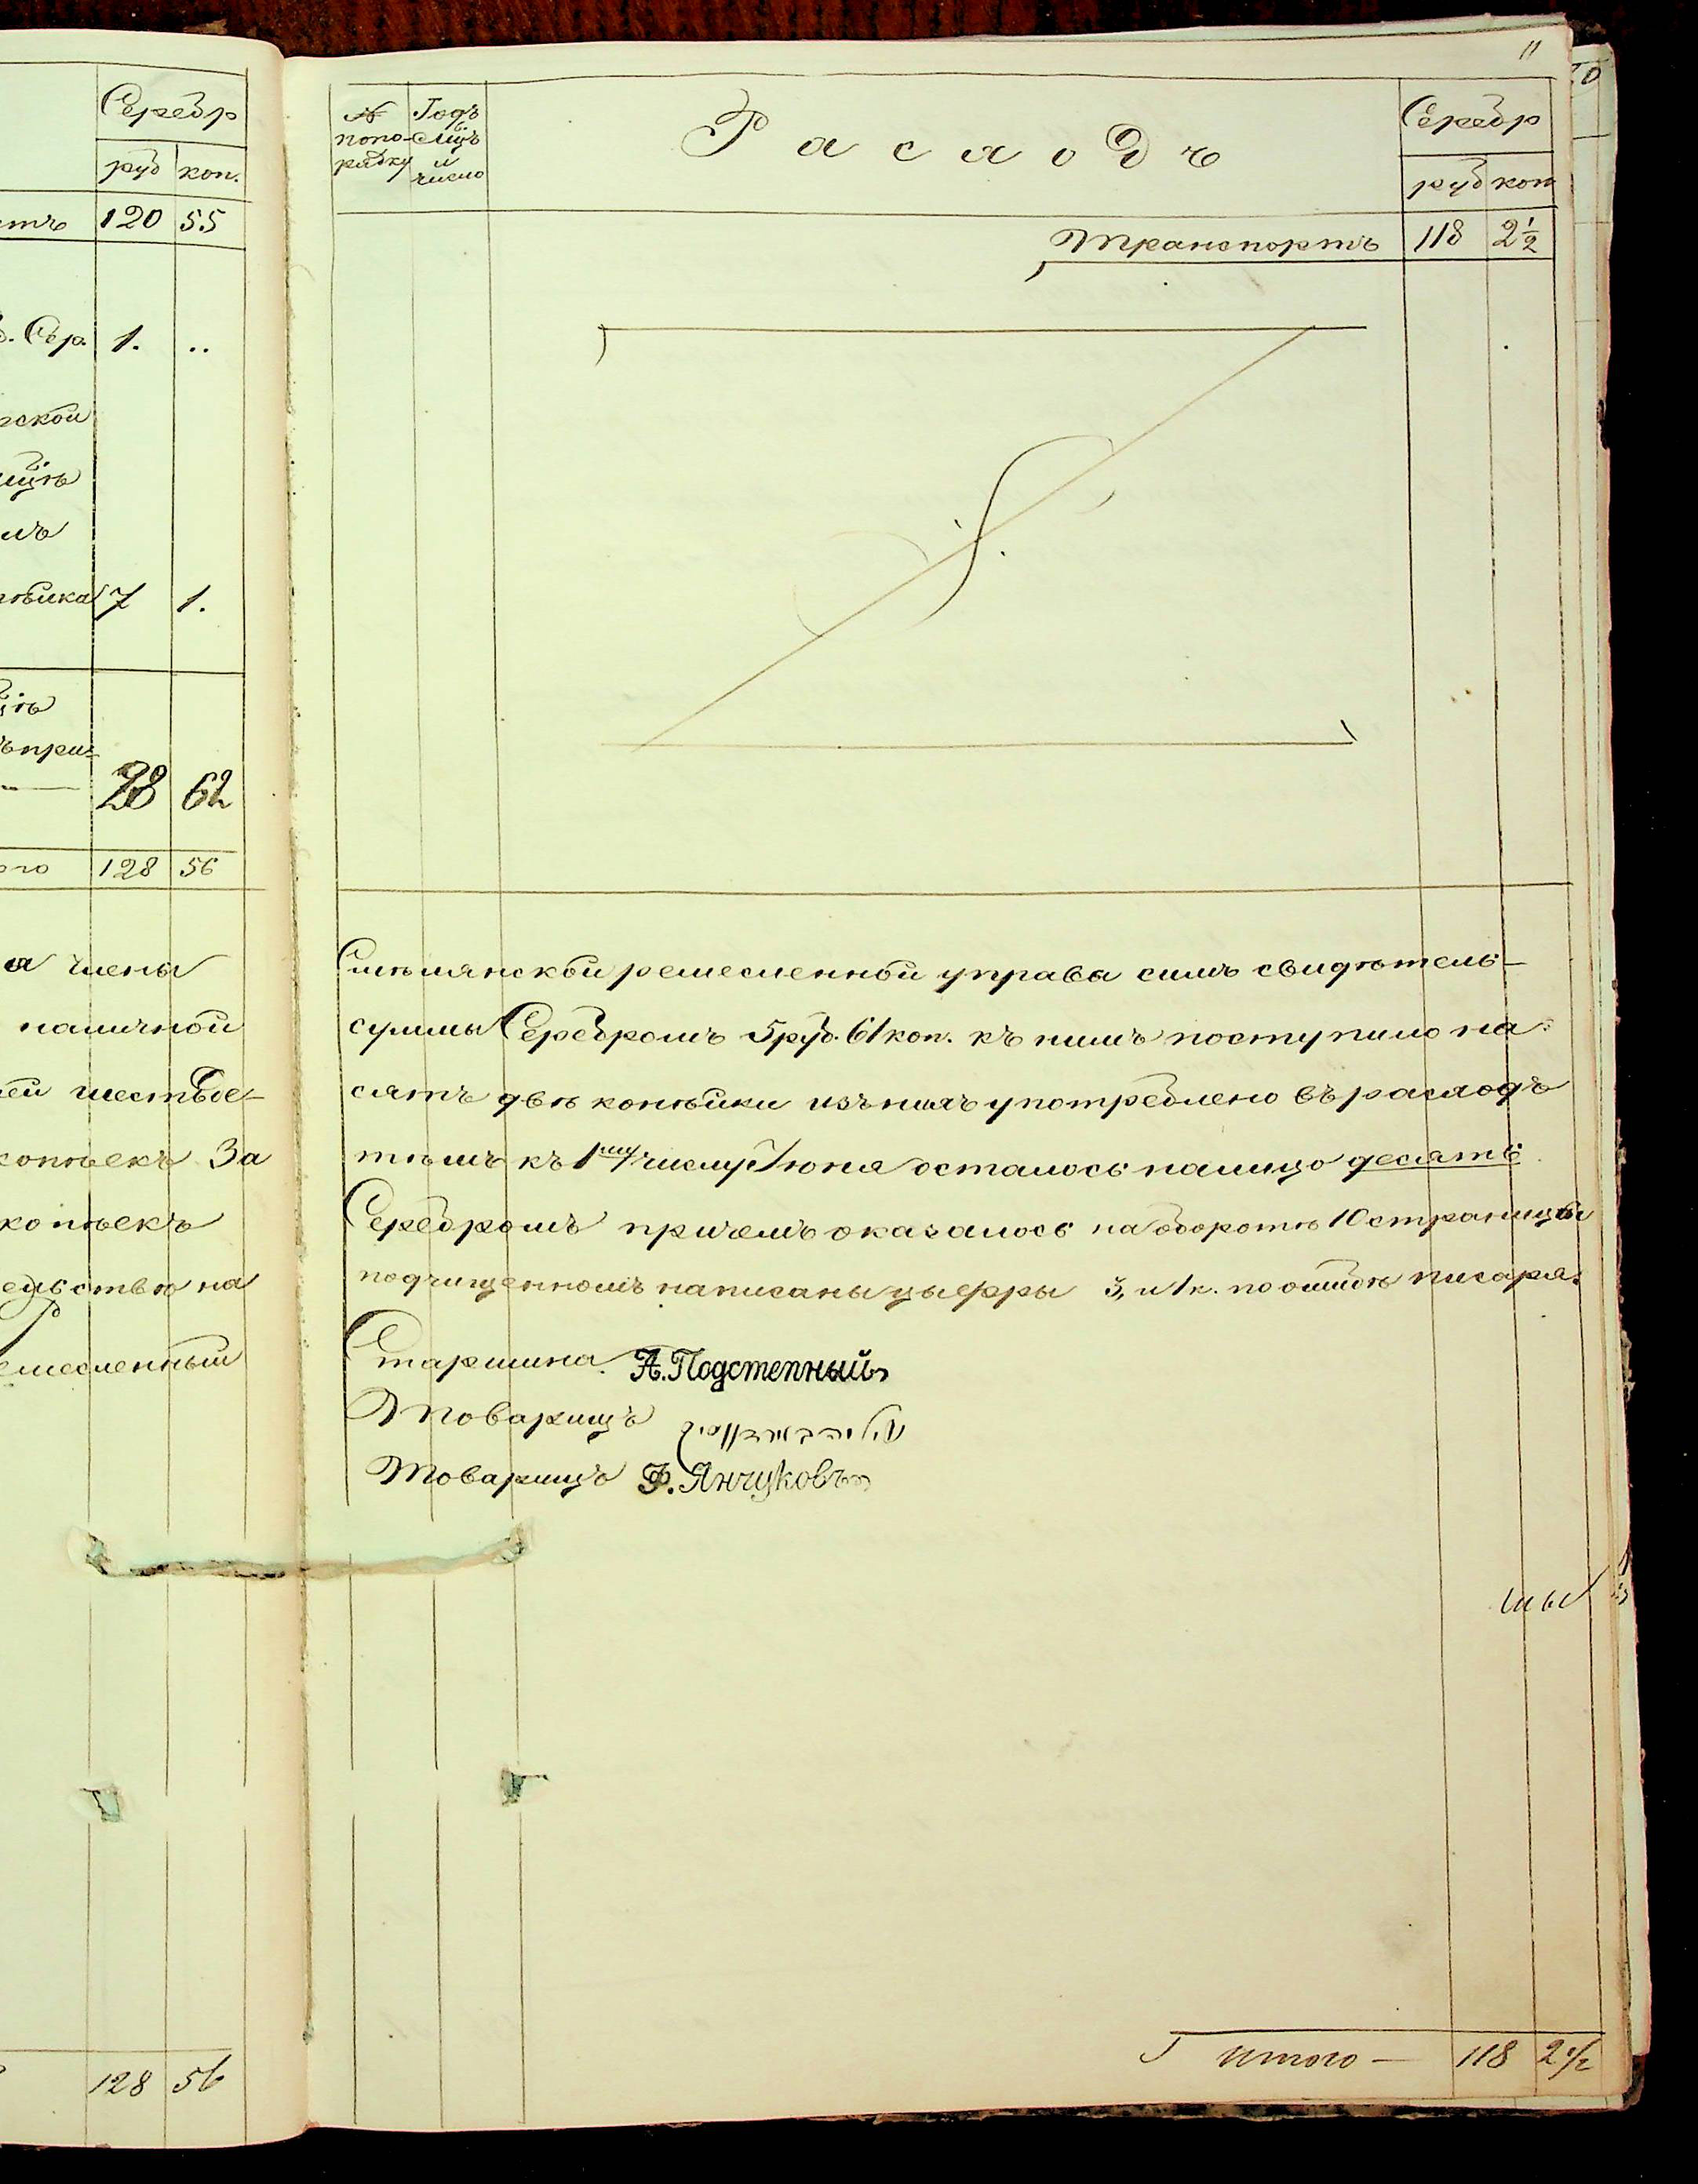 Серебр
руб коп.
120 55
. Сер. 1. ..
ской
7 1.
при-
28 62
128 56
а члены
наличной
ей шестьде-
копѣекъ За
копѣекъ
на
емесленный
128 56
11
№ попо-рядку
Годъ мцъ и число
Расходъ
Серебр
руб коп
Транспортъ 118 2 1/2
ремесленной управа симъ свидѣтель-
суммы Серебромъ 5 руб. 61 коп. къ нимъ поступило на-
сятъ двѣ копѣйки изъ нихъ употреблено въ расходъ
тѣмъ къ 1му числу Июня осталось налицо десять
Серебромъ причемъ оказалось на оборотѣ 10 страницы
подчищенномъ написаны цыфры 3, и 1 к. по ошибкѣ писаря.
Старшина А. Подстепный
Товарищъ
Товарищъ Ф. Янчуковъ
Итого — 118 2 1/2